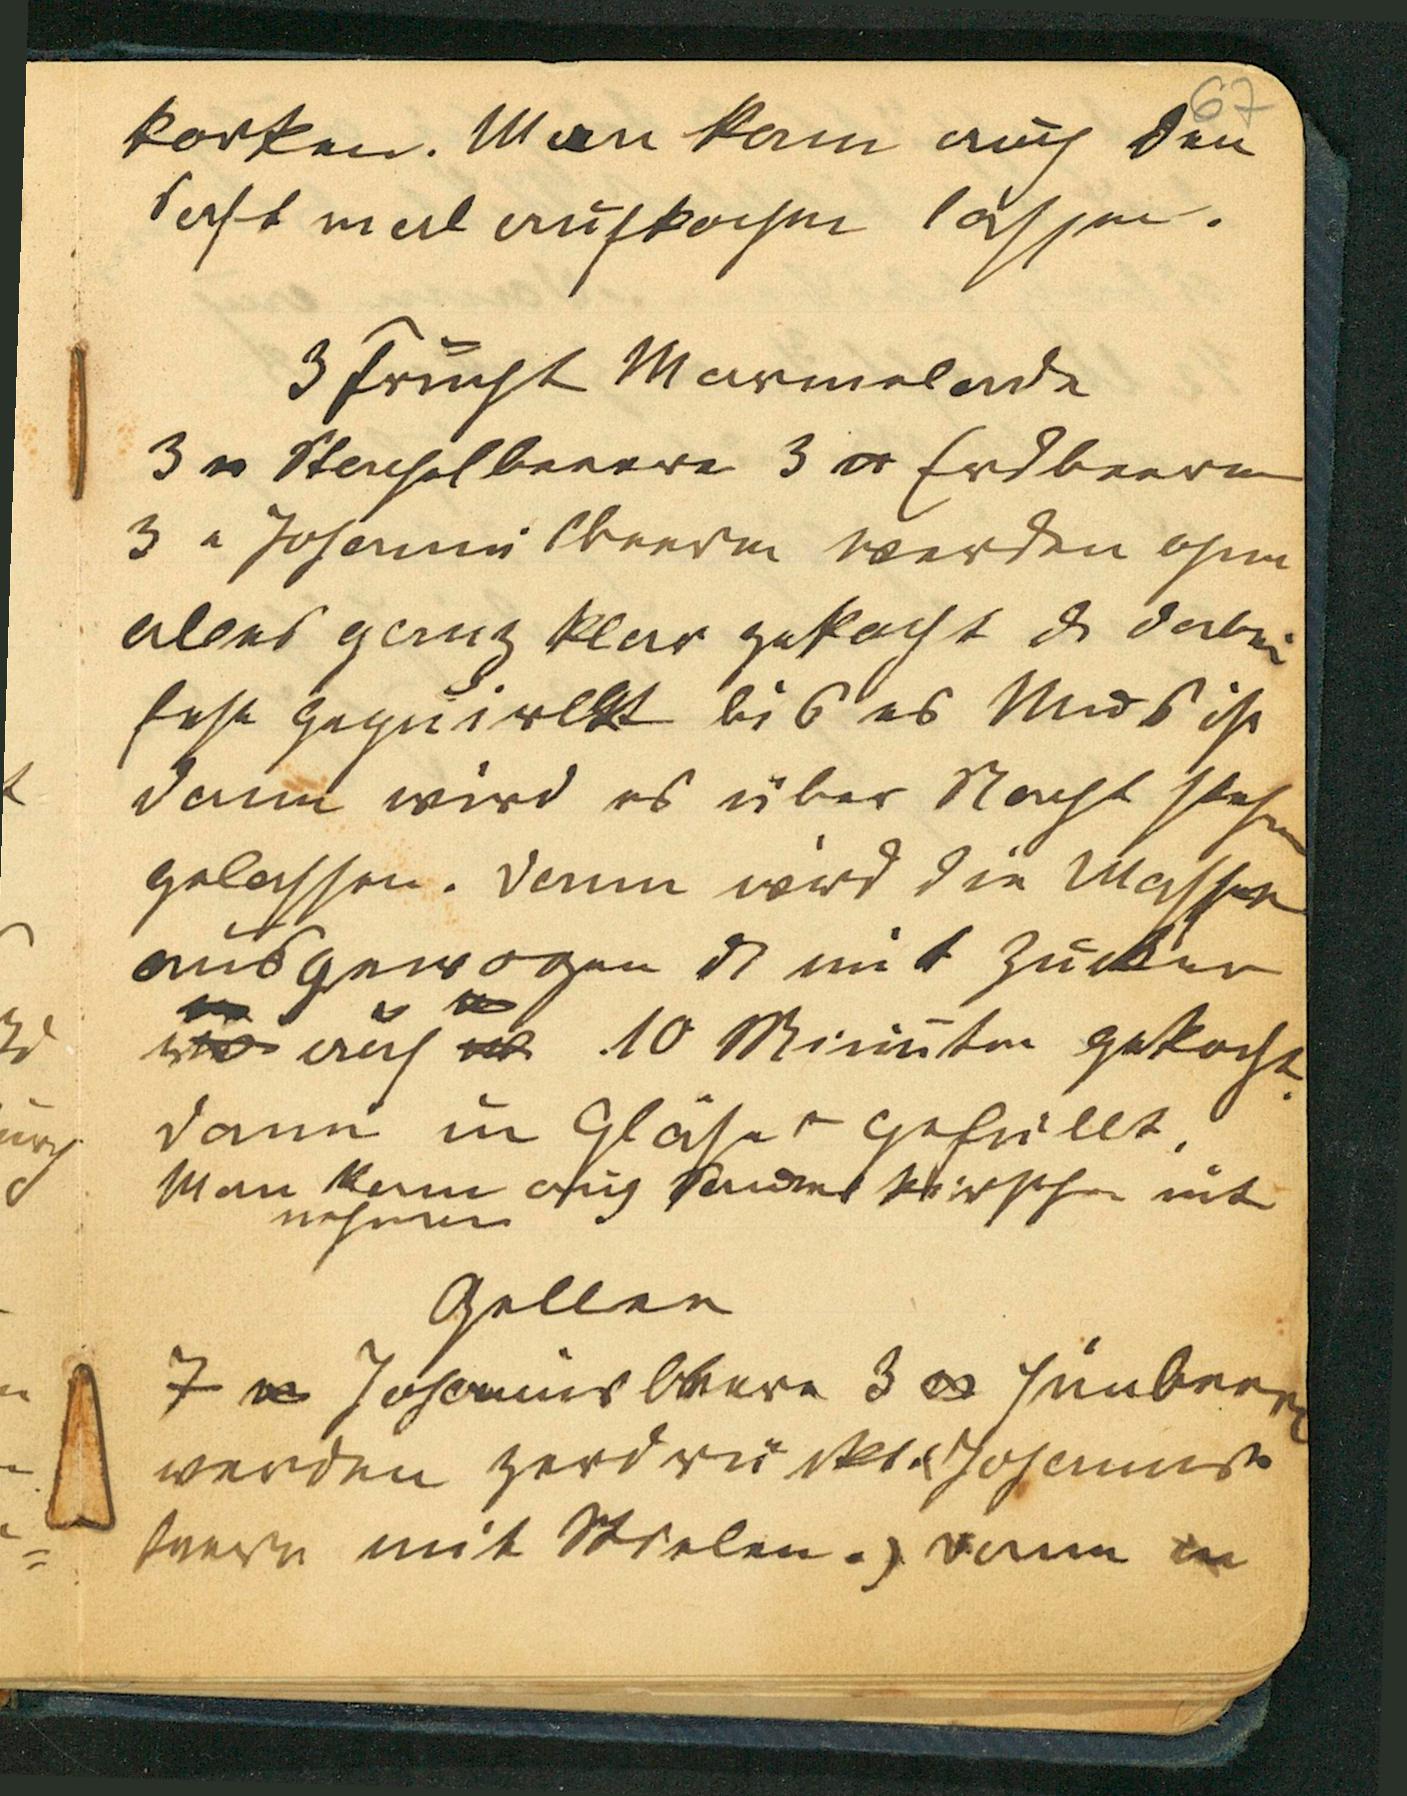 67
korken. Man kann auch den
Saft mal aufkochen lassen.
3 Frucht Marmelade
3 ℔ Stachelbeeren 3 ℔ Erdbeeren
3 " Johannisbeeren werden ohne
alles ganz klar gekocht & dabei
fest gequirlt bis es Mus ist
dann wird es über Nacht stehn
gelassen. Dann wird die Masse
ausgewogen & mit Zucker
℔ auf ℔ 10 Minuten gekocht.
dann in Gläser gefüllt.
Man kann auch kirschen mit
nehmen
Gellee
7 ℔ Johannisbeeren 3 ℔ Himbeeren
werden zerdrückt. (Johannis
beeren mit Stielen.) dann in